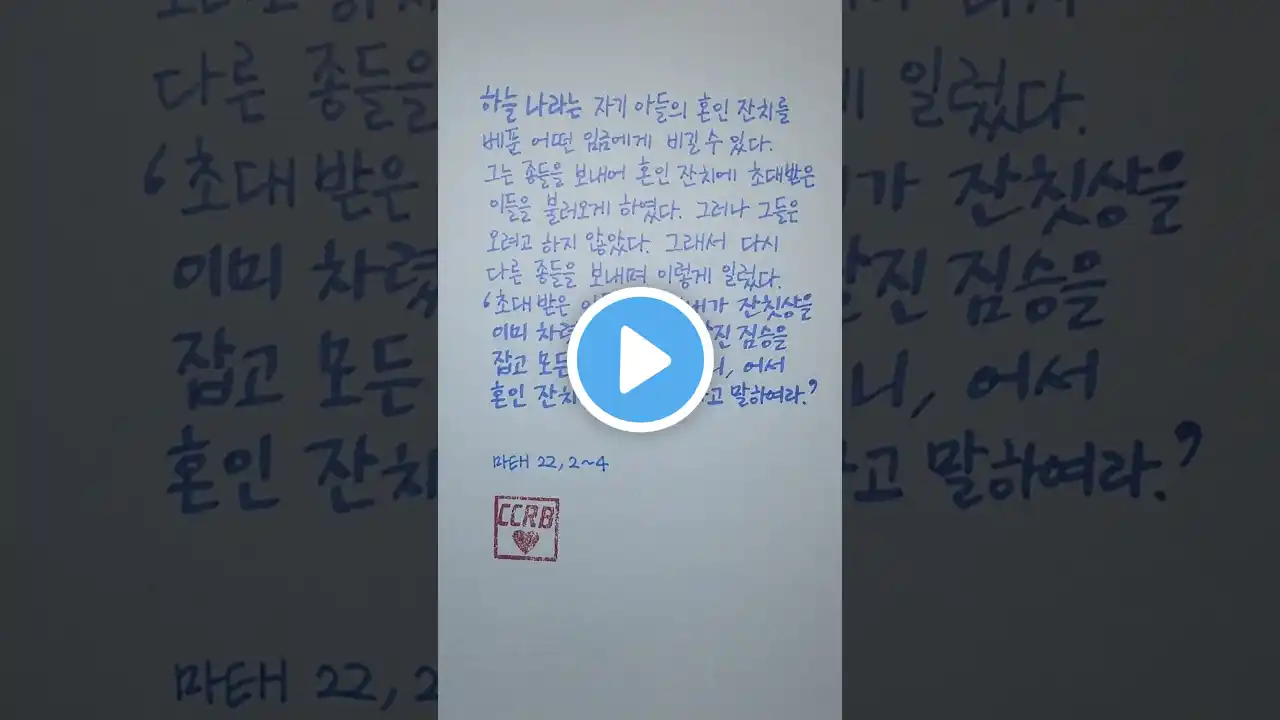 하늘 나라는 자기 아들의 혼인 잔치를
베푼 어떤 임금에게 비길 수 있다.
그는 종들을 보내어 혼인 잔치에 초대받은
이들을 불러오게 하였다. 그러나 그들은
오려고 하지 않았다. 그래서 다시
다른 종들을 보내며 이렇게 일렀다.
‘초대받은 잔칫상을
이미 짐승을
잡고 어서
혼인 말하여라.’
마태 22, 2~4
CCRB